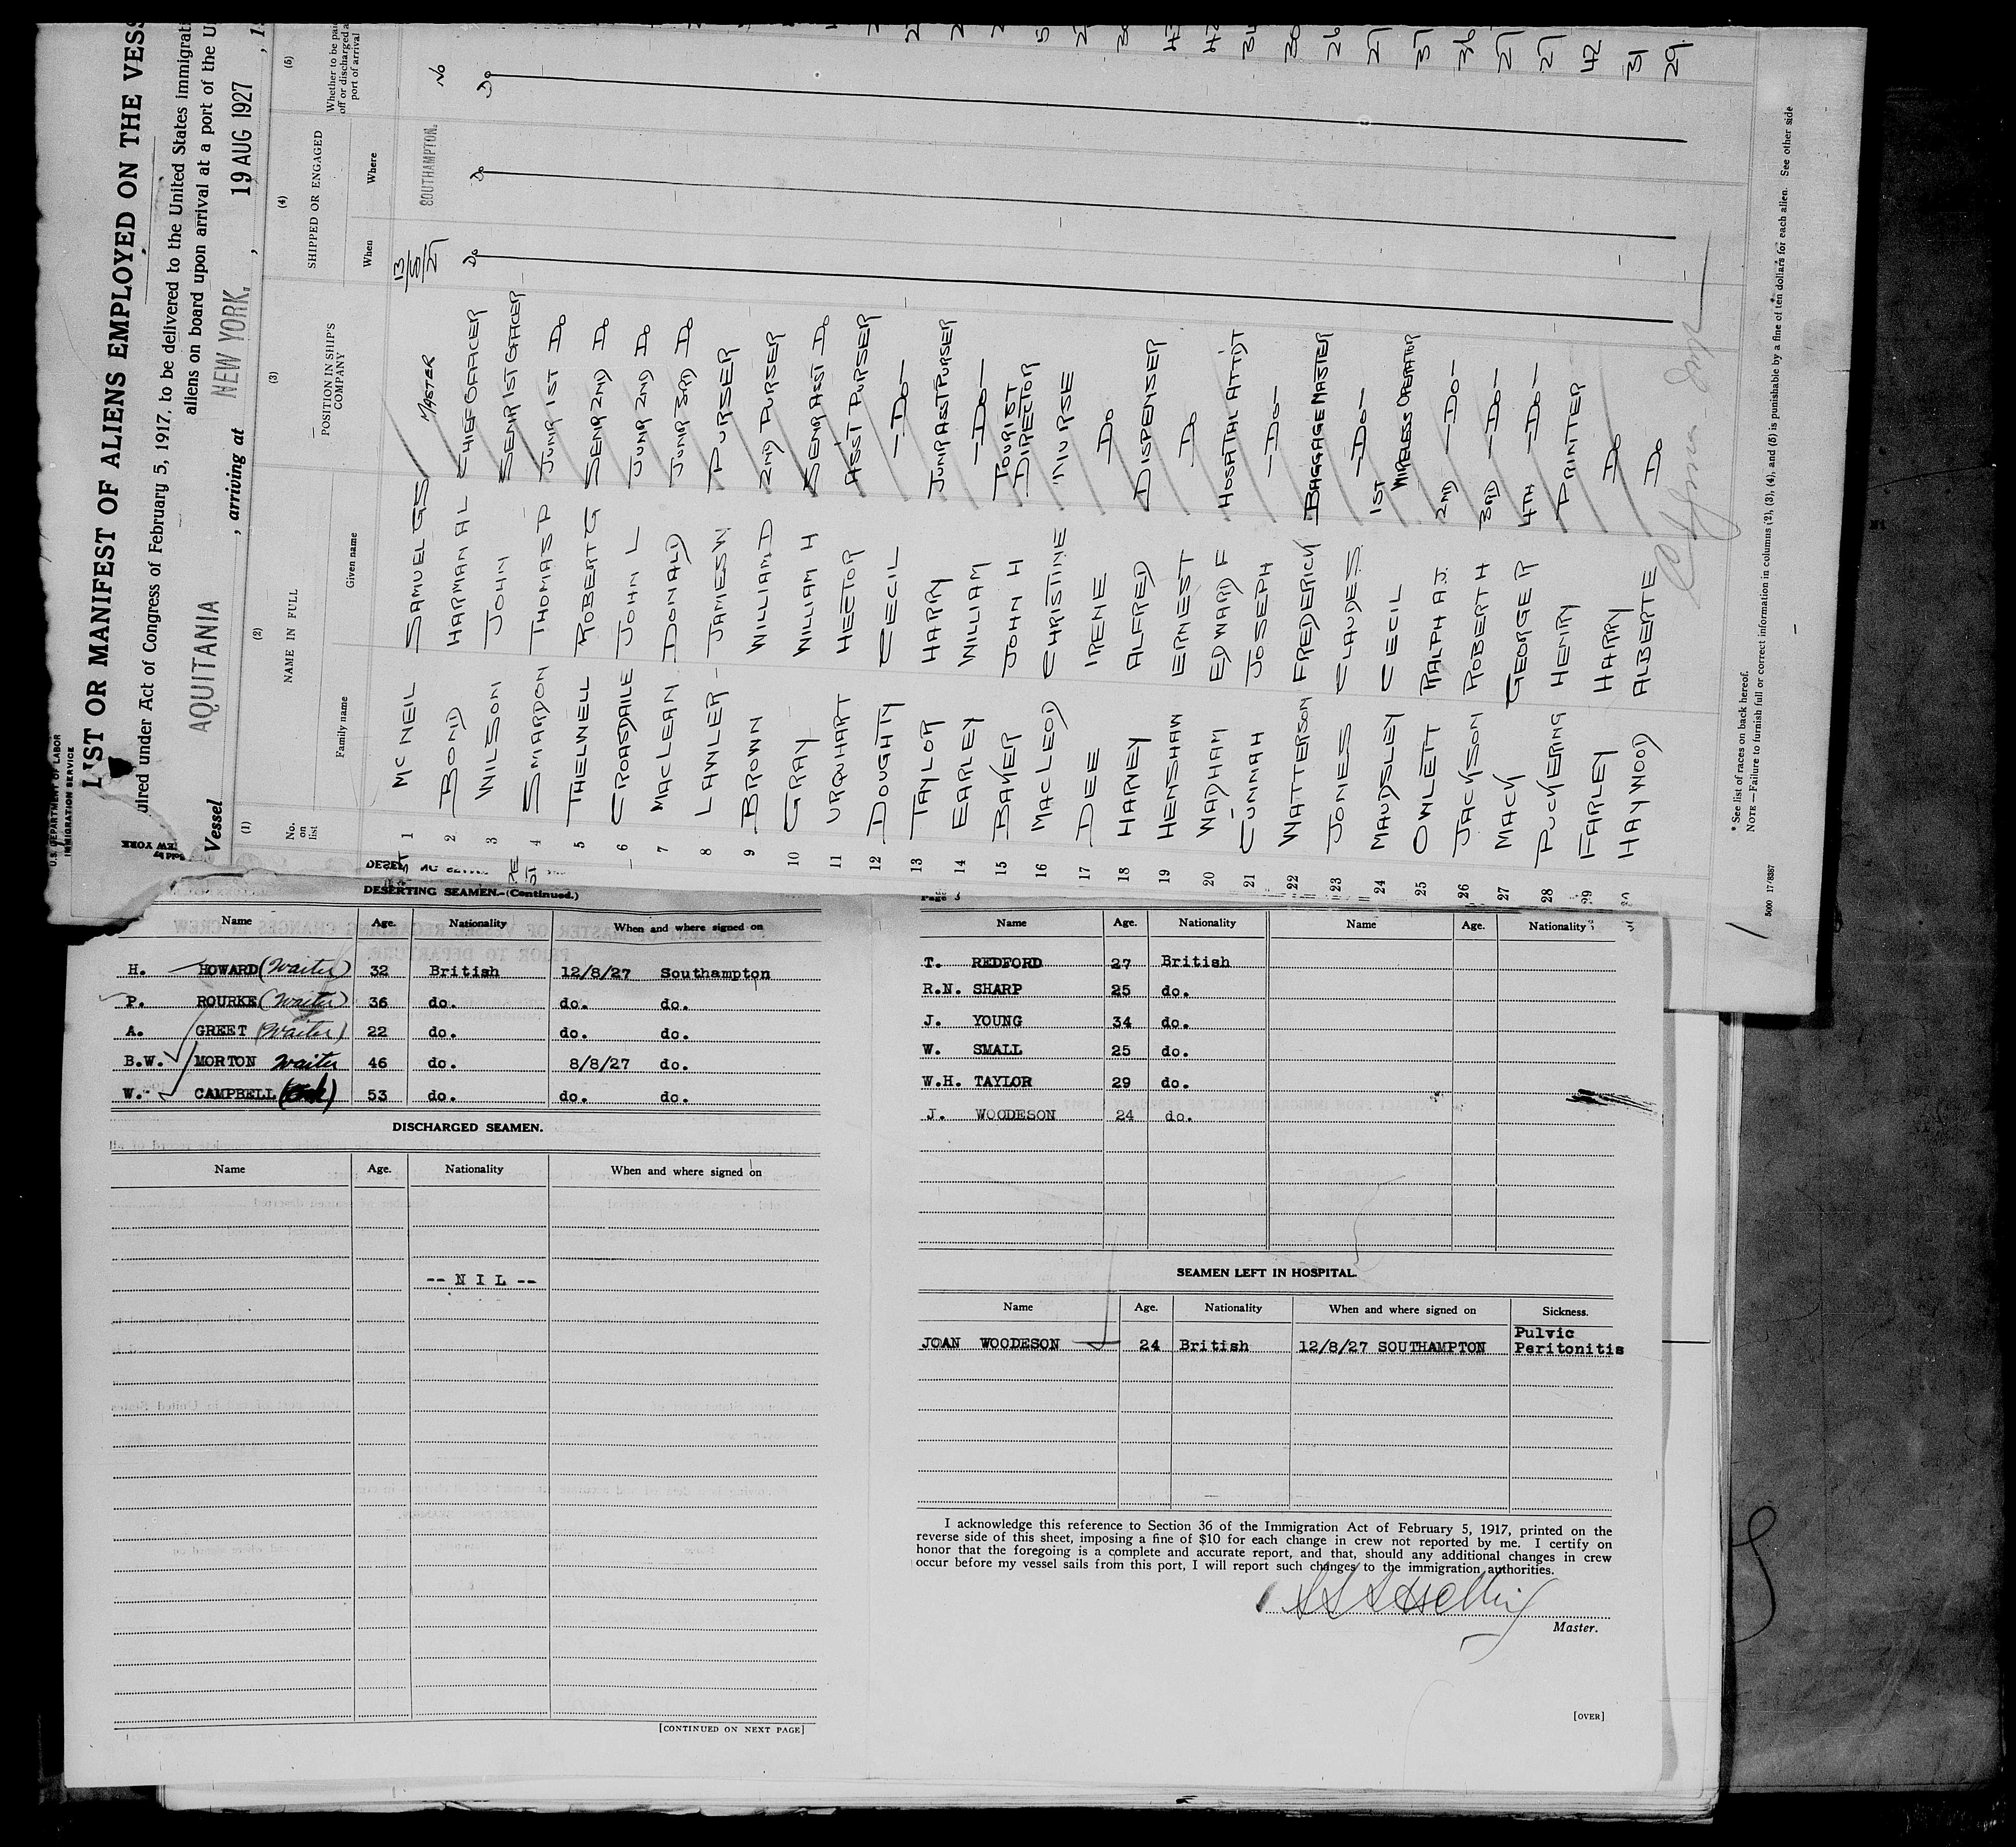 U.S. DEPARTMENT OF LABOR
IMMIGRATION SERVICE
LIST OR MANIFEST OF ALIENS EMPLOYED ON THE VESS
uired under Act of Congress of February 5, 1917, to be delivered to the United States immigrati
aliens on board upon arrival at a port of the U
Vessel AQUITANIA , arriving at NEW YORK. , 19 AUG 1927 , 1
(1) (2) (3) (4) (5)
No. on list NAME IN FULL POSITION IN SHIP'S COMPANY SHIPPED OR ENGAGED Whether to be pai off or discharged a port of arrival
Family name Given name When Where
1 MCNEIL SAMUEL GS MASTER 13/8/27 SOUTHAMPTON. No
2 BOND HARMAN AL CHIEF OFFICER Do Do Do
3 WILSON JOHN SENR 1ST OFFICER
4 SMIARDON THOMAS P JUNR 1ST Do
5 THELWELL ROBERT G SENR 2ND Do
6 CROASDAILE JOHN L JUNR 2ND Do
7 MACLEAN DONALD JUNR 3RD Do
8 LAWLER JAMES W PURSER
9 BROWN WILLIAM D 2ND PURSER
10 GRAY WILLIAM H SENR ASST Do
11 URQUHART HECTOR ASST PURSER
12 DOUGHTY CECIL —Do—
13 TAYLOR HARRY JUNR ASST PURSER
14 EARLEY WILLIAM —Do—
15 BAKER JOHN H TOURIST DIRECTOR
16 MACLEOD CHRISTINE NURSE
17 DEE IRENE Do
18 HARVEY ALFRED DISPENSER
19 HENSHAW ERNEST Do
20 WADHAM EDWARD F HOSPITAL ATTDT
21 CUNNAH JOSEPH —Do—
22 WATTERSON FREDERICK BAGGAGE MASTER
23 JONES CLAUDE S. —Do—
24 MAUDSLEY CECIL 1ST WIRELESS OPERATOR
25 OWLETT RALPH A.J. 2ND —Do—
26 JACKSON ROBERT H 3RD —Do—
27 MACK GEORGE R 4TH —Do—
28 PUCKERING HENRY PRINTER
29 FARLEY HARRY Do
HAYWOOD ALBERT E Do
34 30 26 27 37 36 27 27 42 31 29
* See list of races on back hereof.
NOTE—Failure to furnish full or correct information in columns (2), (3), (4), and (5) is punishable by a fine of ten dollars for each alien. See other side
5000 17/8387
DESERTING SEAMEN.—(Continued.)
Name Age. Nationality When and where signed on
H. HOWARD (Waiter) 32 British 12/8/27 Southampton
P. ROURKE (Waiter) 36 do. do. do.
A. GREET (Waiter) 22 do. do. do.
B.W. MORTON Waiter 46 do. 8/8/27 do.
W. CAMPBELL 53 do. do. do.
DISCHARGED SEAMEN.
Name Age. Nationality When and where signed on
-- N I L --
[CONTINUED ON NEXT PAGE]
Page 3
Name Age. Nationality Name Age. Nationality
T. REDFORD 27 British
R.N. SHARP 25 do.
J. YOUNG 34 do.
W. SMALL 25 do.
W.H. TAYLOR 29 do.
J. WOODESON 24 do.
SEAMEN LEFT IN HOSPITAL.
Name Age. Nationality When and where signed on Sickness.
JOAN WOODESON 24 British 12/8/27 SOUTHAMPTON Pulvic Peritonitis
I acknowledge this reference to Section 36 of the Immigration Act of February 5, 1917, printed on the
reverse side of this sheet, imposing a fine of $10 for each change in crew not reported by me. I certify on
honor that the foregoing is a complete and accurate report, and that, should any additional changes in crew
occur before my vessel sails from this port, I will report such changes to the immigration authorities.
Master.
[OVER]